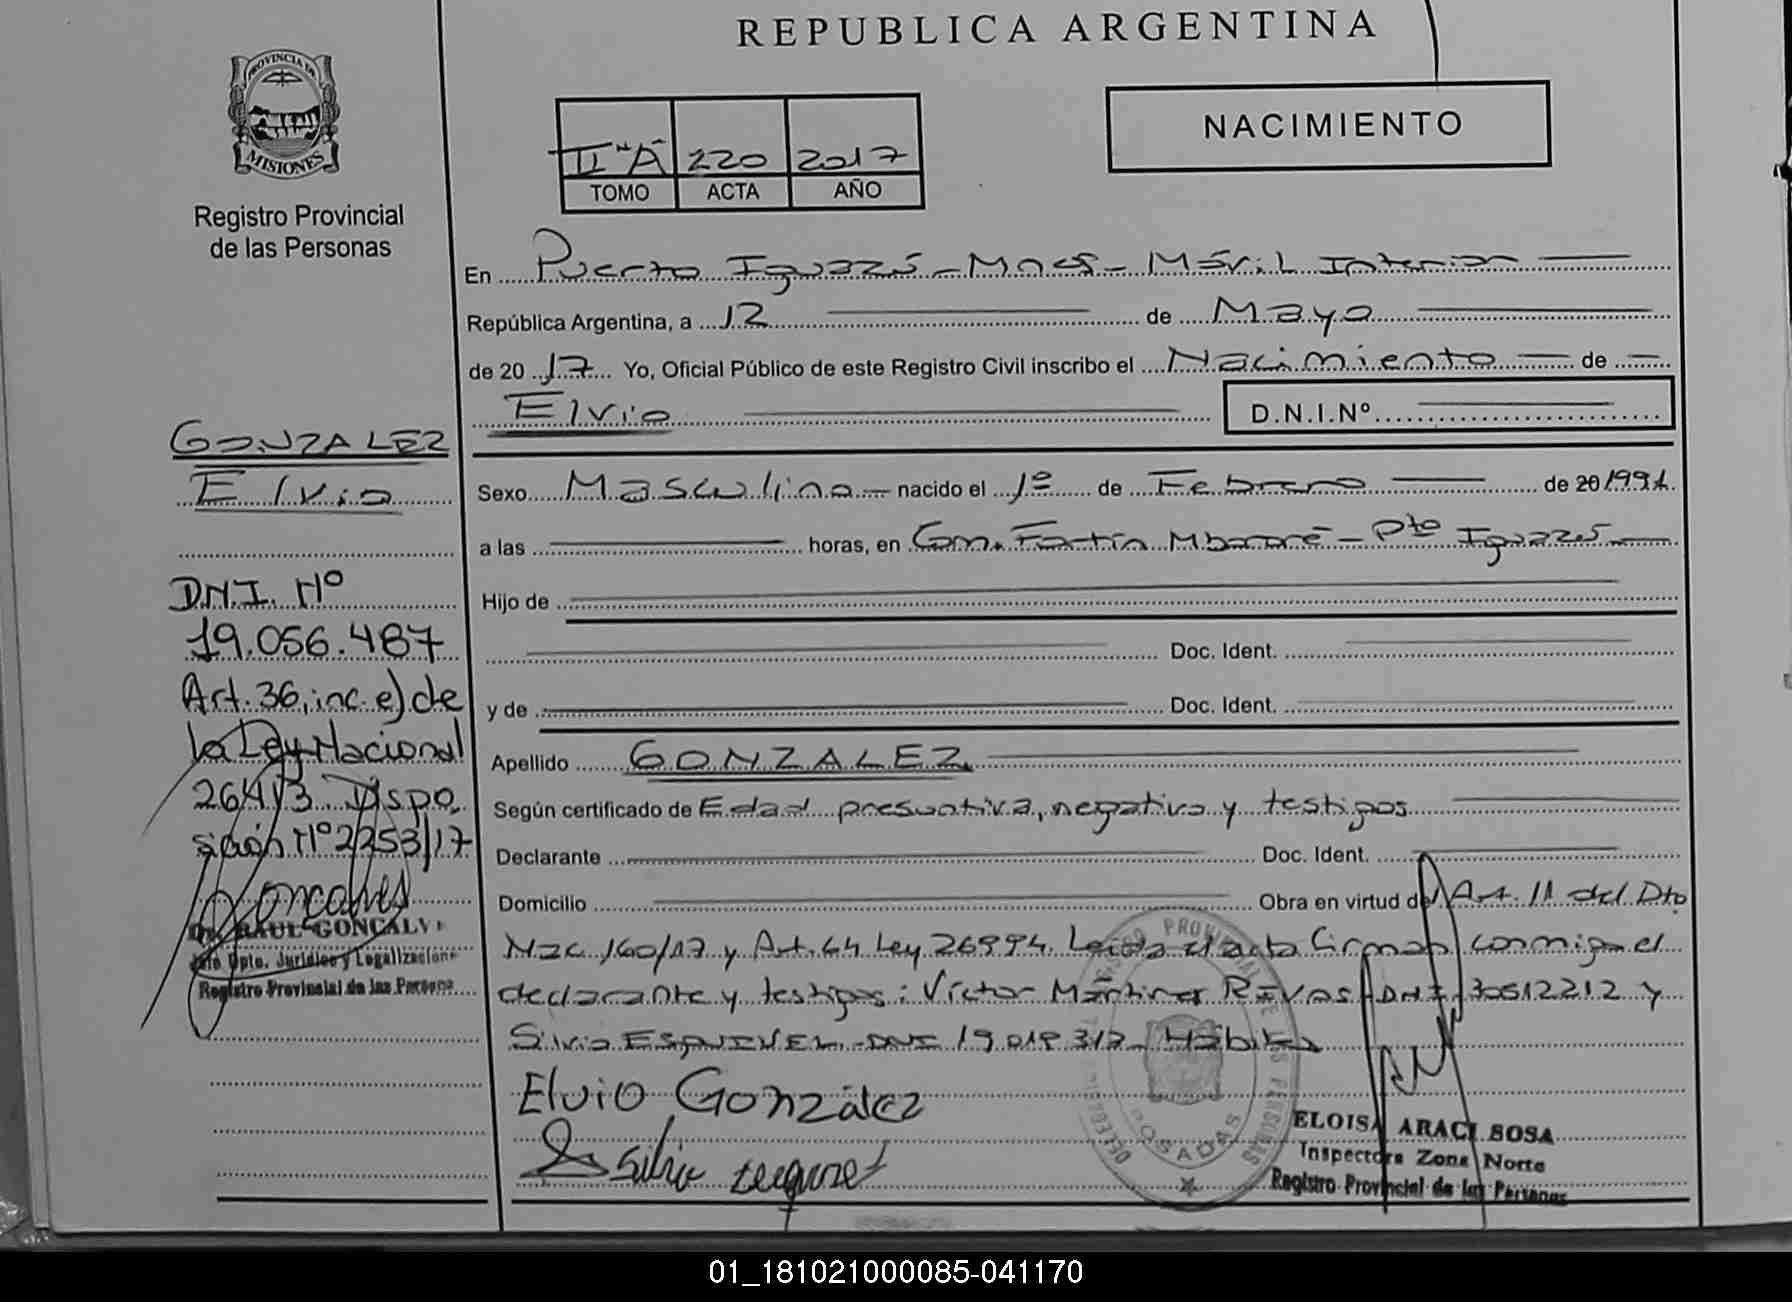 REPUBLICA ARGENTINA
PROVINCIA DE
MISIONES
Registro Provincial
de las Personas
NACIMIENTO
II "A" 220 2017
TOMO ACTA AÑO
En Puerto Iguazú - Mnes - Móvil Interior
República Argentina, a 12 de Mayo
de 2017 Yo, Oficial Público de este Registro Civil inscribo el Nacimiento de
Elvio D.N.I.Nº
Sexo Masculino nacido el 1º de Febrero de 20 1991.
a las horas, en Com. Fortín Mbororé - Pto Iguazú
Hijo de
Doc. Ident.
y de Doc. Ident.
Apellido GONZALEZ
Según certificado de Edad presuntiva, negativa y testigos
Declarante Doc. Ident.
Domicilio Obra en virtud de Art. 11 del Dto
Nac 160/17 y Art. 64 Ley 26994. Leída el acta firman conmigo el
declarante y testigos: Víctor Martinez RIVAS DNI 30512212 y
Silvio ESQUIVEL - DNI 19.018.312 Hábiles
Elvio González
Silvio
ELOISA ARACI SOSA
Inspectora Zona Norte
Registro Provincial de las Personas
REGISTRO PROVINCIAL DE LAS PERSONAS
POSADAS
GONZALEZ
Elvio
D.N.I. Nº
19.056.487
Art. 36, inc. e) de
la Ley Nacional
26413 Dispo
sición Nº 2253/17
Goncalves
RAUL GONCALV
Jefe Dpto. Jurídico y Legalizacione
Registro Provincial de las Persona
01_181021000085-041170